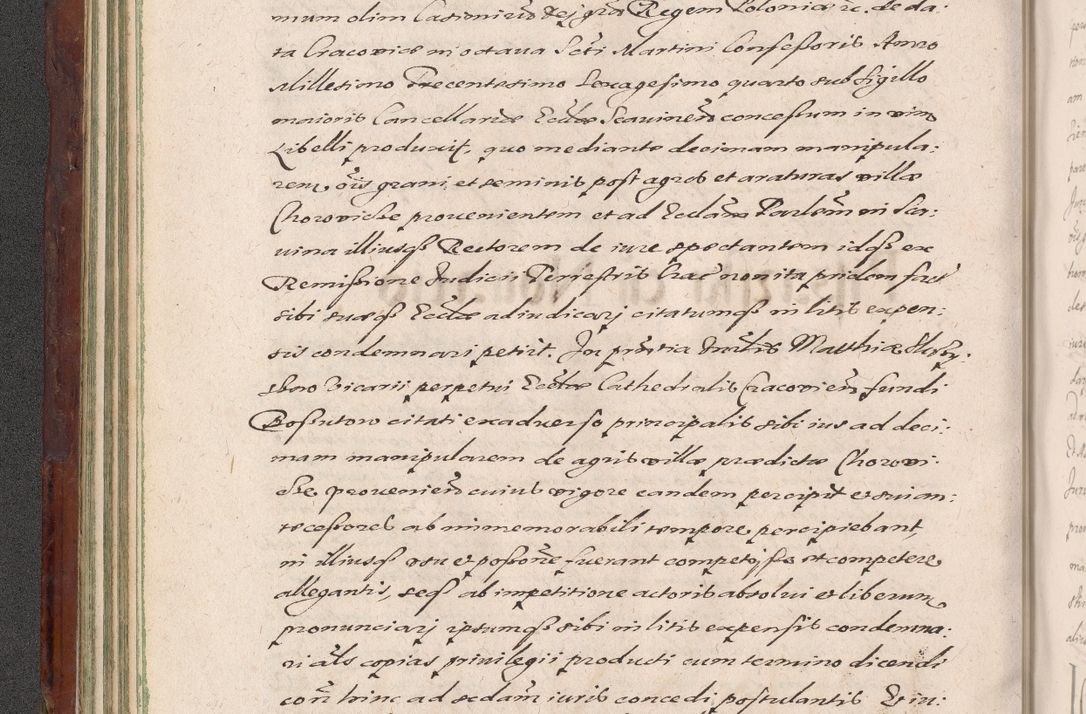 mum olim Casimirū Dej grã Regem Poloniæ &c. de da:
ta Cracoviæ in octava Scti Martini Confeſſoris Anno
Millesimo Trecentesimo Sexagesimo quarto sub sigillo
maioris Cancellariæ Ecclæ Scavinen̄ conceſſum in vim
Libelli produxit, quo mediante decimam manipula:
rem, oĩs grani, et seminis post agros et araturas villæ
Chorovicke provenientem et ad Ecclãm Parlẽm in Sca:
vina illiusqꝫ Rectorem de iure spectantem idqꝫ ex
Remiſſione Judicii Terrestris Crac̄ non ita pridem fact̄
sibi suæqꝫ Ecclæ adiudicarj citatumqꝫ in litis expen:
sis condemnari petiit. In pñtia
Vicarii perpetui Ecclæ Cathedralis Cracovien̄ fundi
Poſſutoro citati ex adverso principalis sibi ius ad deci:
mam manipularem de agris villæ prædictæ Chorovi:
cke provenien̄ cuius vigore eandem percipit et sui an:
teceſſores ab immemorabili tempore percipiebant,
in illiusqꝫ usu et poſſõne fuerant competijſse et competere
allegantis, seqꝫ ab impetitione actoris absolvi et liberum
pronunciarj ipsumqꝫ sibi in litis expensis condemna:
ri als copias privilegii producti cum termino dicendi
con̄ hinc ad sedam̄ iuris concedi postulantis Et in: